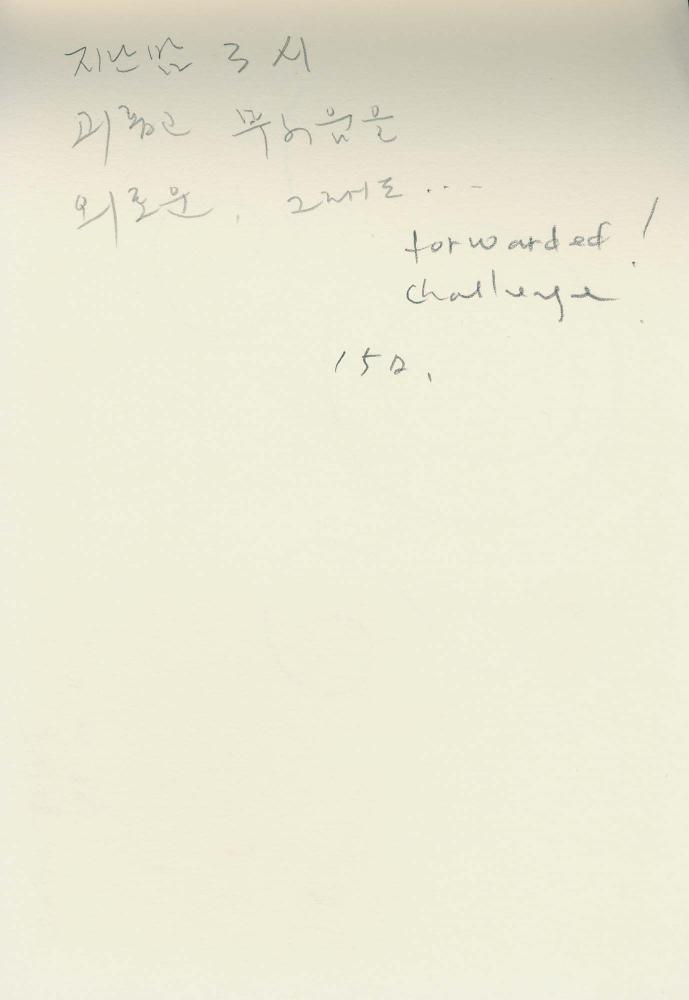 지난밤 3시
괴롭고 무서움을
외로운, 그래도...
forwarded!
challenge
150.